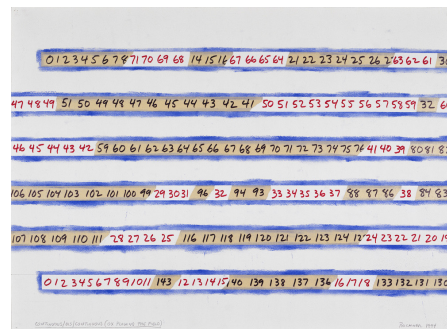 0 1 2 3 4 5 6 7 8 71 70 69 68 14 15 16 67 66 65 64 21 22 23 24 25 26 2 63 62 61
47 48 49 51 50 49 48 47 46 45 44 43 42 41 50 51 52 53 54 55 56 57 58 59 32
46 45 44 43 42 59 60 61 62 63 64 65 66 67 68 69 70 71 72 73 74 75 76 41 40 39 80 81
106 105 104 103 102 101 100 99 29 30 31 96 32 94 93 33 34 35 36 37 88 87 86 38 84 83
107 108 109 110 111 28 27 26 25 116 117 118 119 120 121 122 123 124 12 24 23 22 21 20 19
0 1 2 3 4 5 6 7 8 9 10 11 143 12 13 14 15 140 139 138 137 136 16 17 18 133 132 131 130